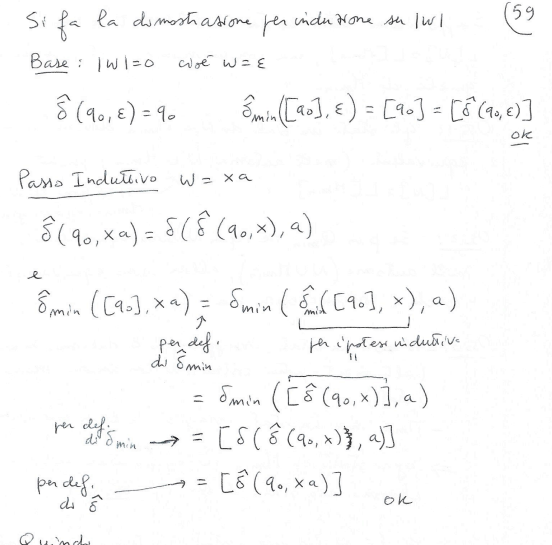 Si fa la dimostrazione per induzione su |w| (59
Base: |w|=0 cioè w=ε
δ̂(q₀,ε)=q₀ δ̂min([q₀],ε)=[q₀]=[δ̂(q₀,ε)]
ok
Passo Induttivo w = xa
δ̂(q₀,xa) = δ(δ̂(q₀,x),a)
e
δ̂min([q₀],xa) = δmin(δ̂min([q₀],x),a)
↑
per def. di δ̂min per ipotesi induttiva
= δmin([δ̂(q₀,x)],a)
per def. di δmin → = [δ(δ̂(q₀,x),a)]
per def. di δ̂ → = [δ̂(q₀,xa)] ok
Quindi